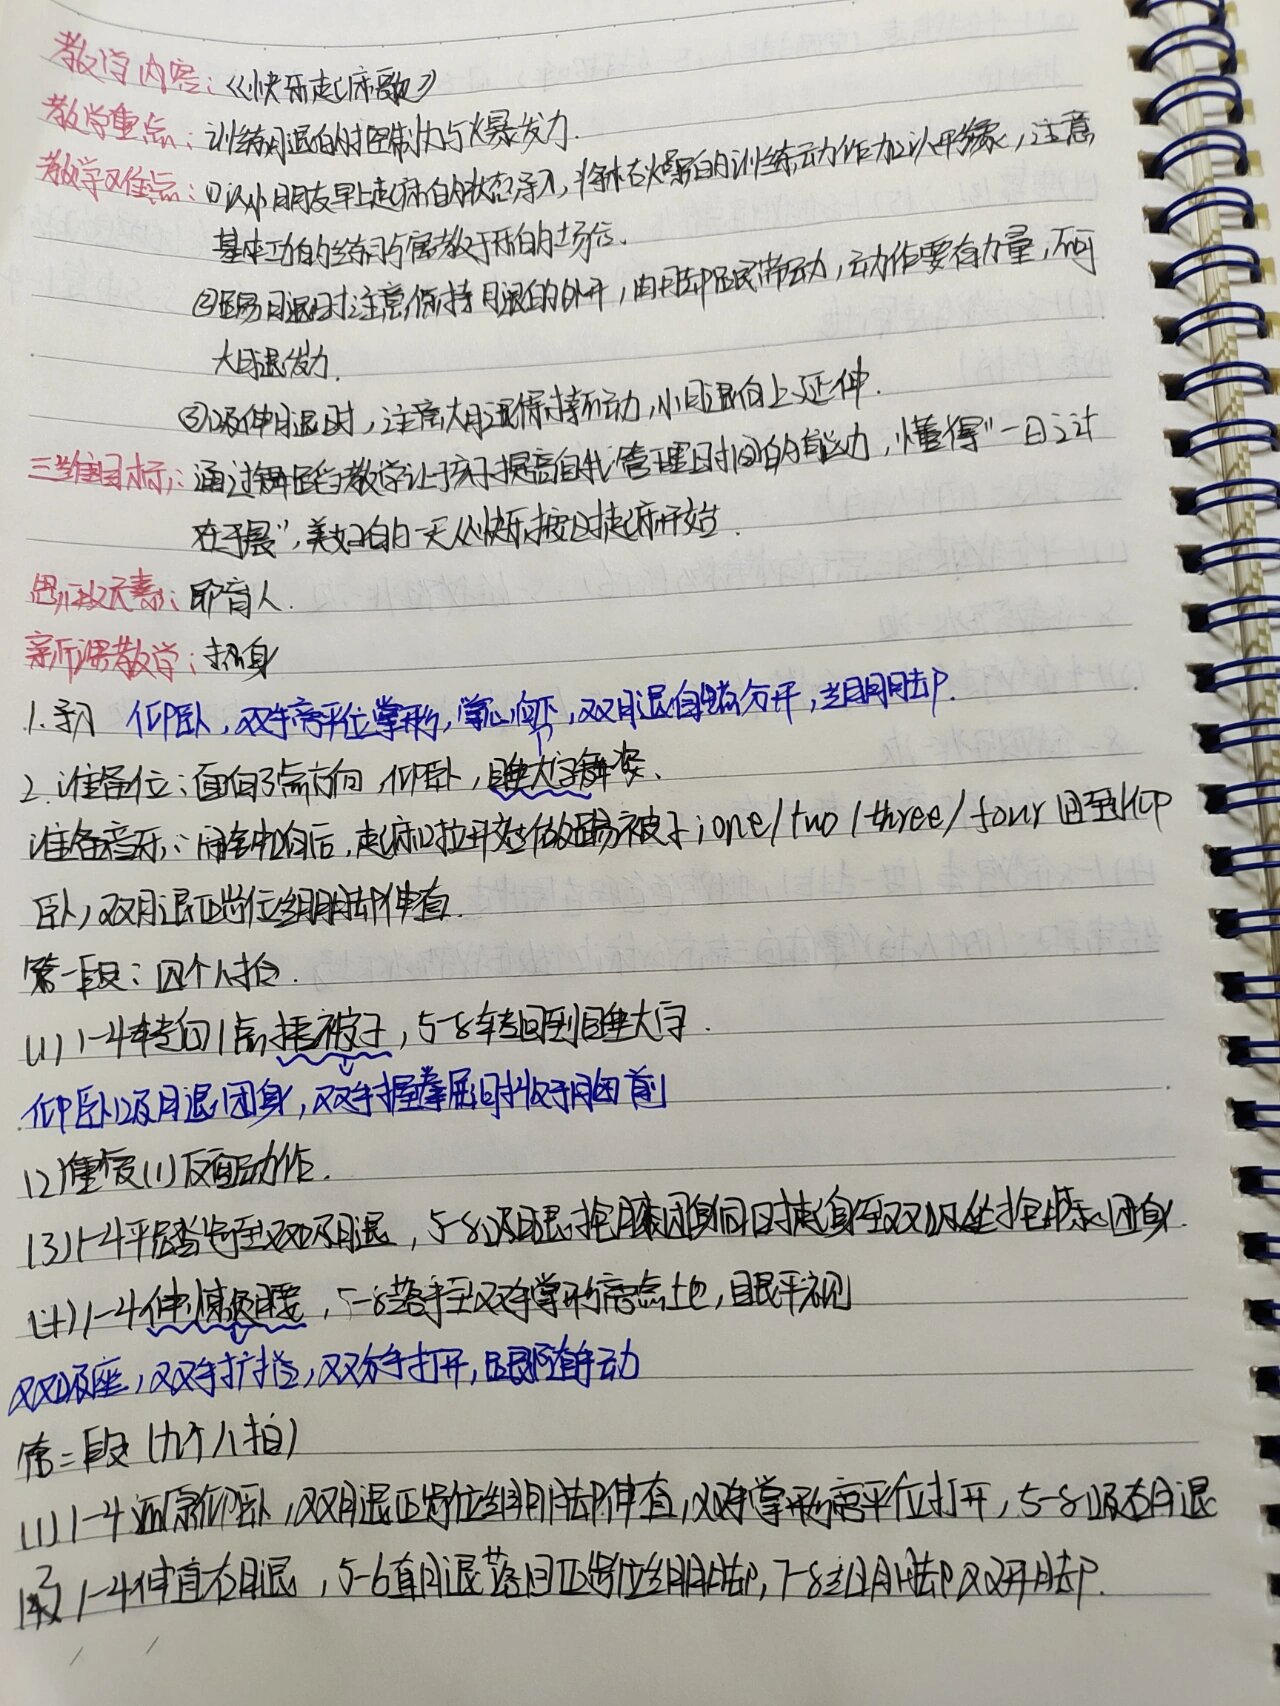 教学内容：《快乐起床歌》
教学重点：训练腿的控制力与爆发力.
教学难点：①以小朋友早上起床的状态导入，将枯燥的训练动作加以形象，注意
基本功的练习与寓教于形的场合.
②踢腿时注意保持腿的外开，由脚尖带动，动作要有力量，不可
大腿发力.
③吸伸腿时，注意大腿保持不动，小腿向上延伸.
三维目标：通过舞蹈教学让孩子提高自我管理时间的能力，懂得"一日之计
在于晨"，美好的一天从快乐按时起床开始.
思政元素：即育人.
新课教学：把身
1. 导入 仰卧，双手高平位掌形，掌心向下，双腿自然分开，绷脚.
2. 准备位：面向3点方向，仰卧，睡大字舞姿.
准备音乐：闹钟响后，起床口拉开始做踢被子；one/two/three/four 回到仰
卧，双腿正步位绷脚伸直.
第一段：四个八拍.
(1) 1-4转向1点抱被子，5-8转回到睡大字.
仰卧吸腿团身，双手握拳屈肘收于胸前
(2) 重复(1)反面动作.
(3) 1-4平踏步至双吸腿，5-8吸腿抱膝团身同时起身至双吸坐抱膝团身.
(4) 1-4伸懒腰，5-8落手至双手掌形旁点地，目眼平视
双吸座，双手扩指，双手打开，眼随手动
第二段(九个八拍)
(1) 1-4还原仰卧，双腿正步位绷脚伸直，双手掌形高平位打开，5-8吸右腿
(2) 1-4伸直右腿，5-6直腿落回正步位绷脚，7-8绷脚双开脚.